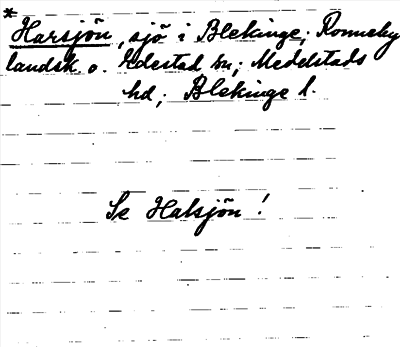 *
Harsjön, sjö i Blekinge; Ronneby
landsk o. Edestad sn; Medelstads
hd; Blekinge l.
Se Halsjön!